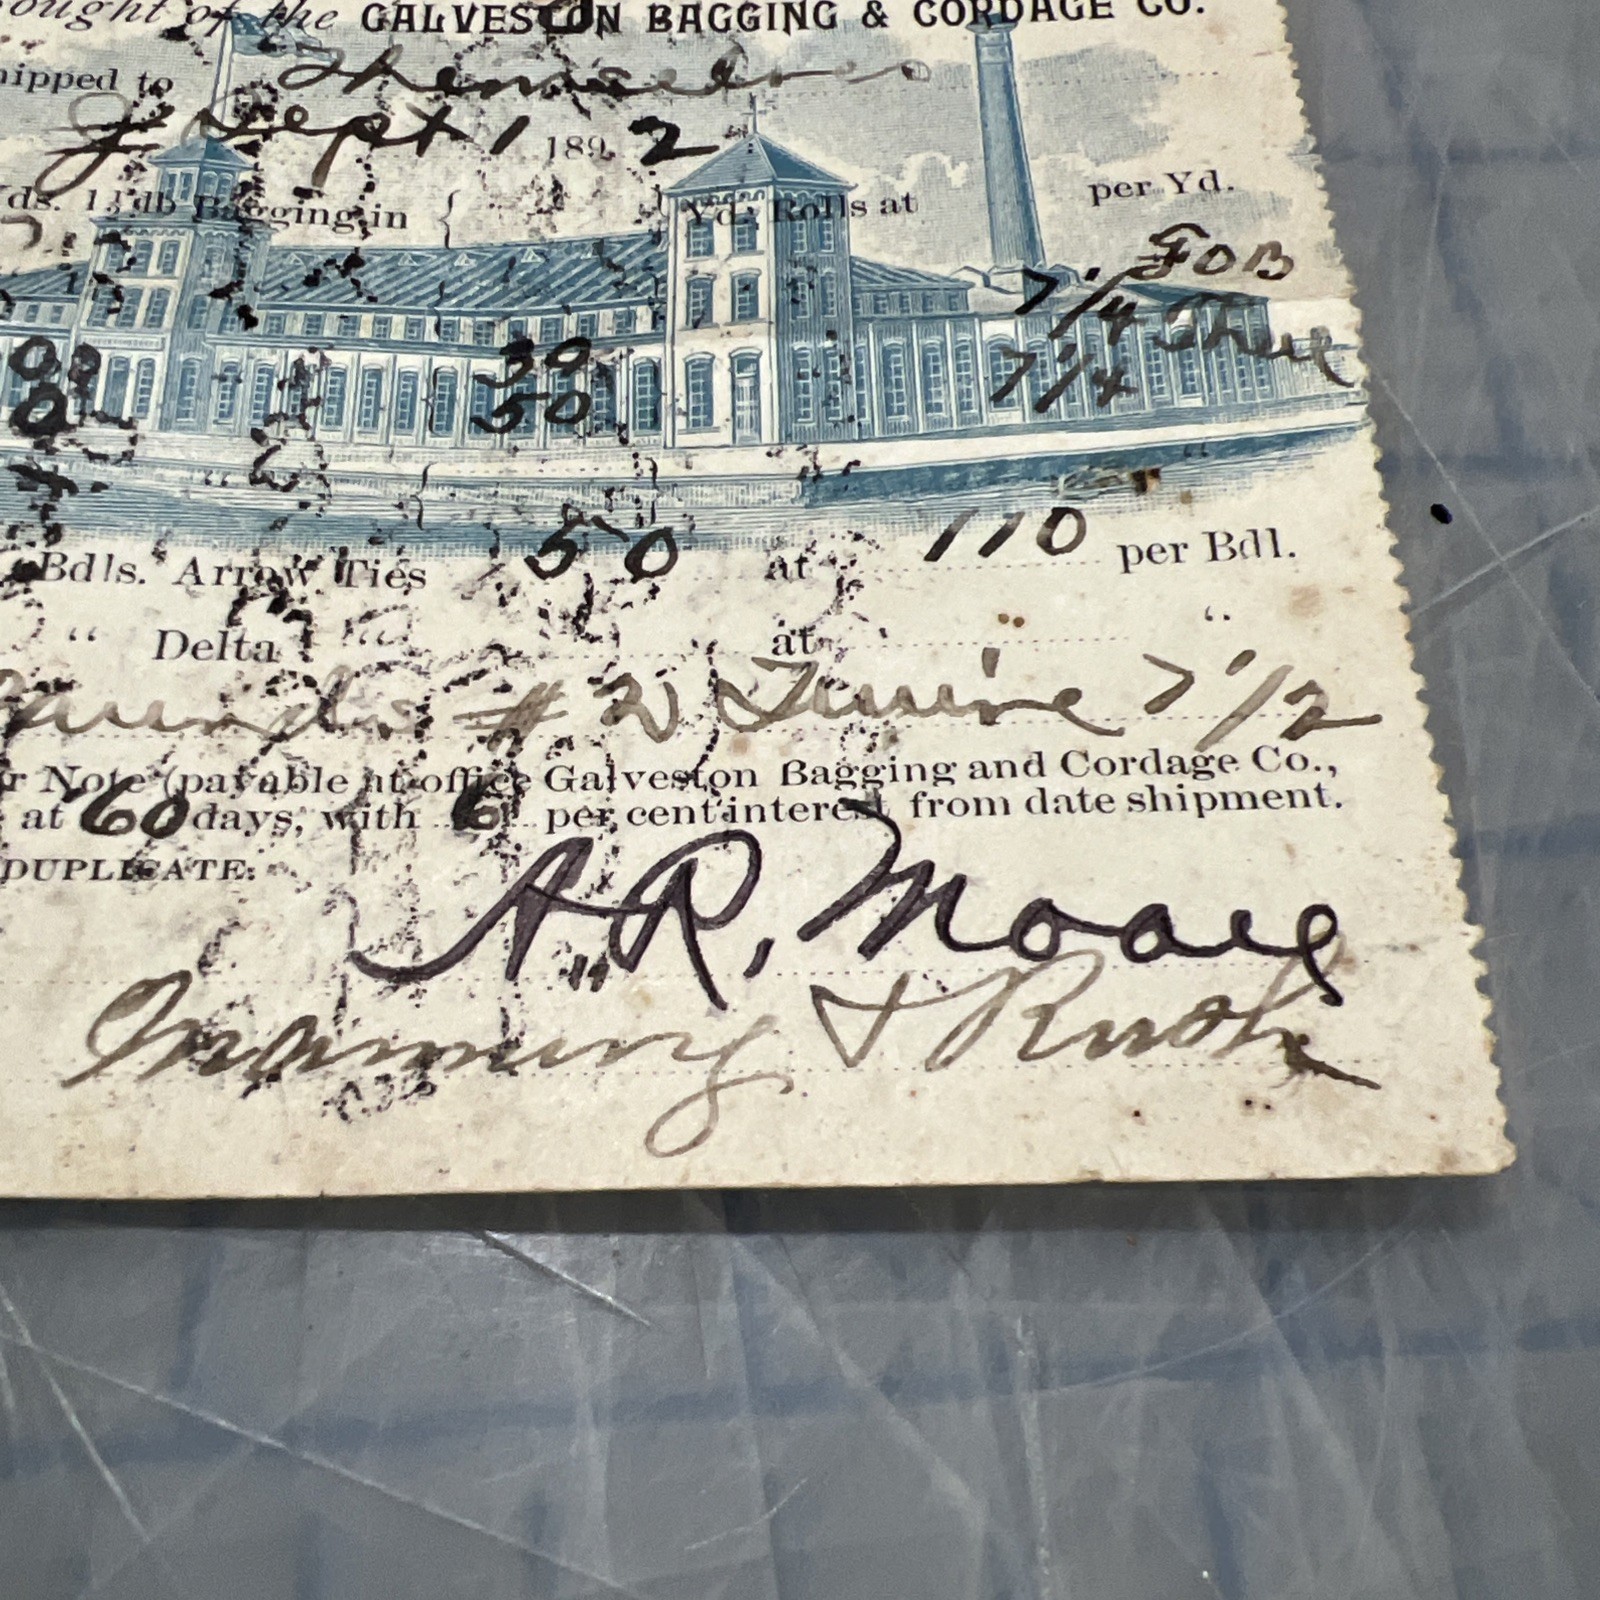 ought of the GALVESTON BAGGING & CORDAGE CO.
hipped to Themselves
Sept 1 1892
ds. 1¾ lb Bagging in { } Yd. Rolls at per Yd.
FOB
7 1/4
00 30 7 1/4
0 50
" "
Bdls. Arrow Ties 50 at 110 per Bdl.
" Delta " at "
# 2 Twine 7 1/2
r Note (payable at office Galveston Bagging and Cordage Co.,
at 60 days, with 6 per cent interest from date shipment.
DUPLICATE.
A. R. Moore
Manning & Rush